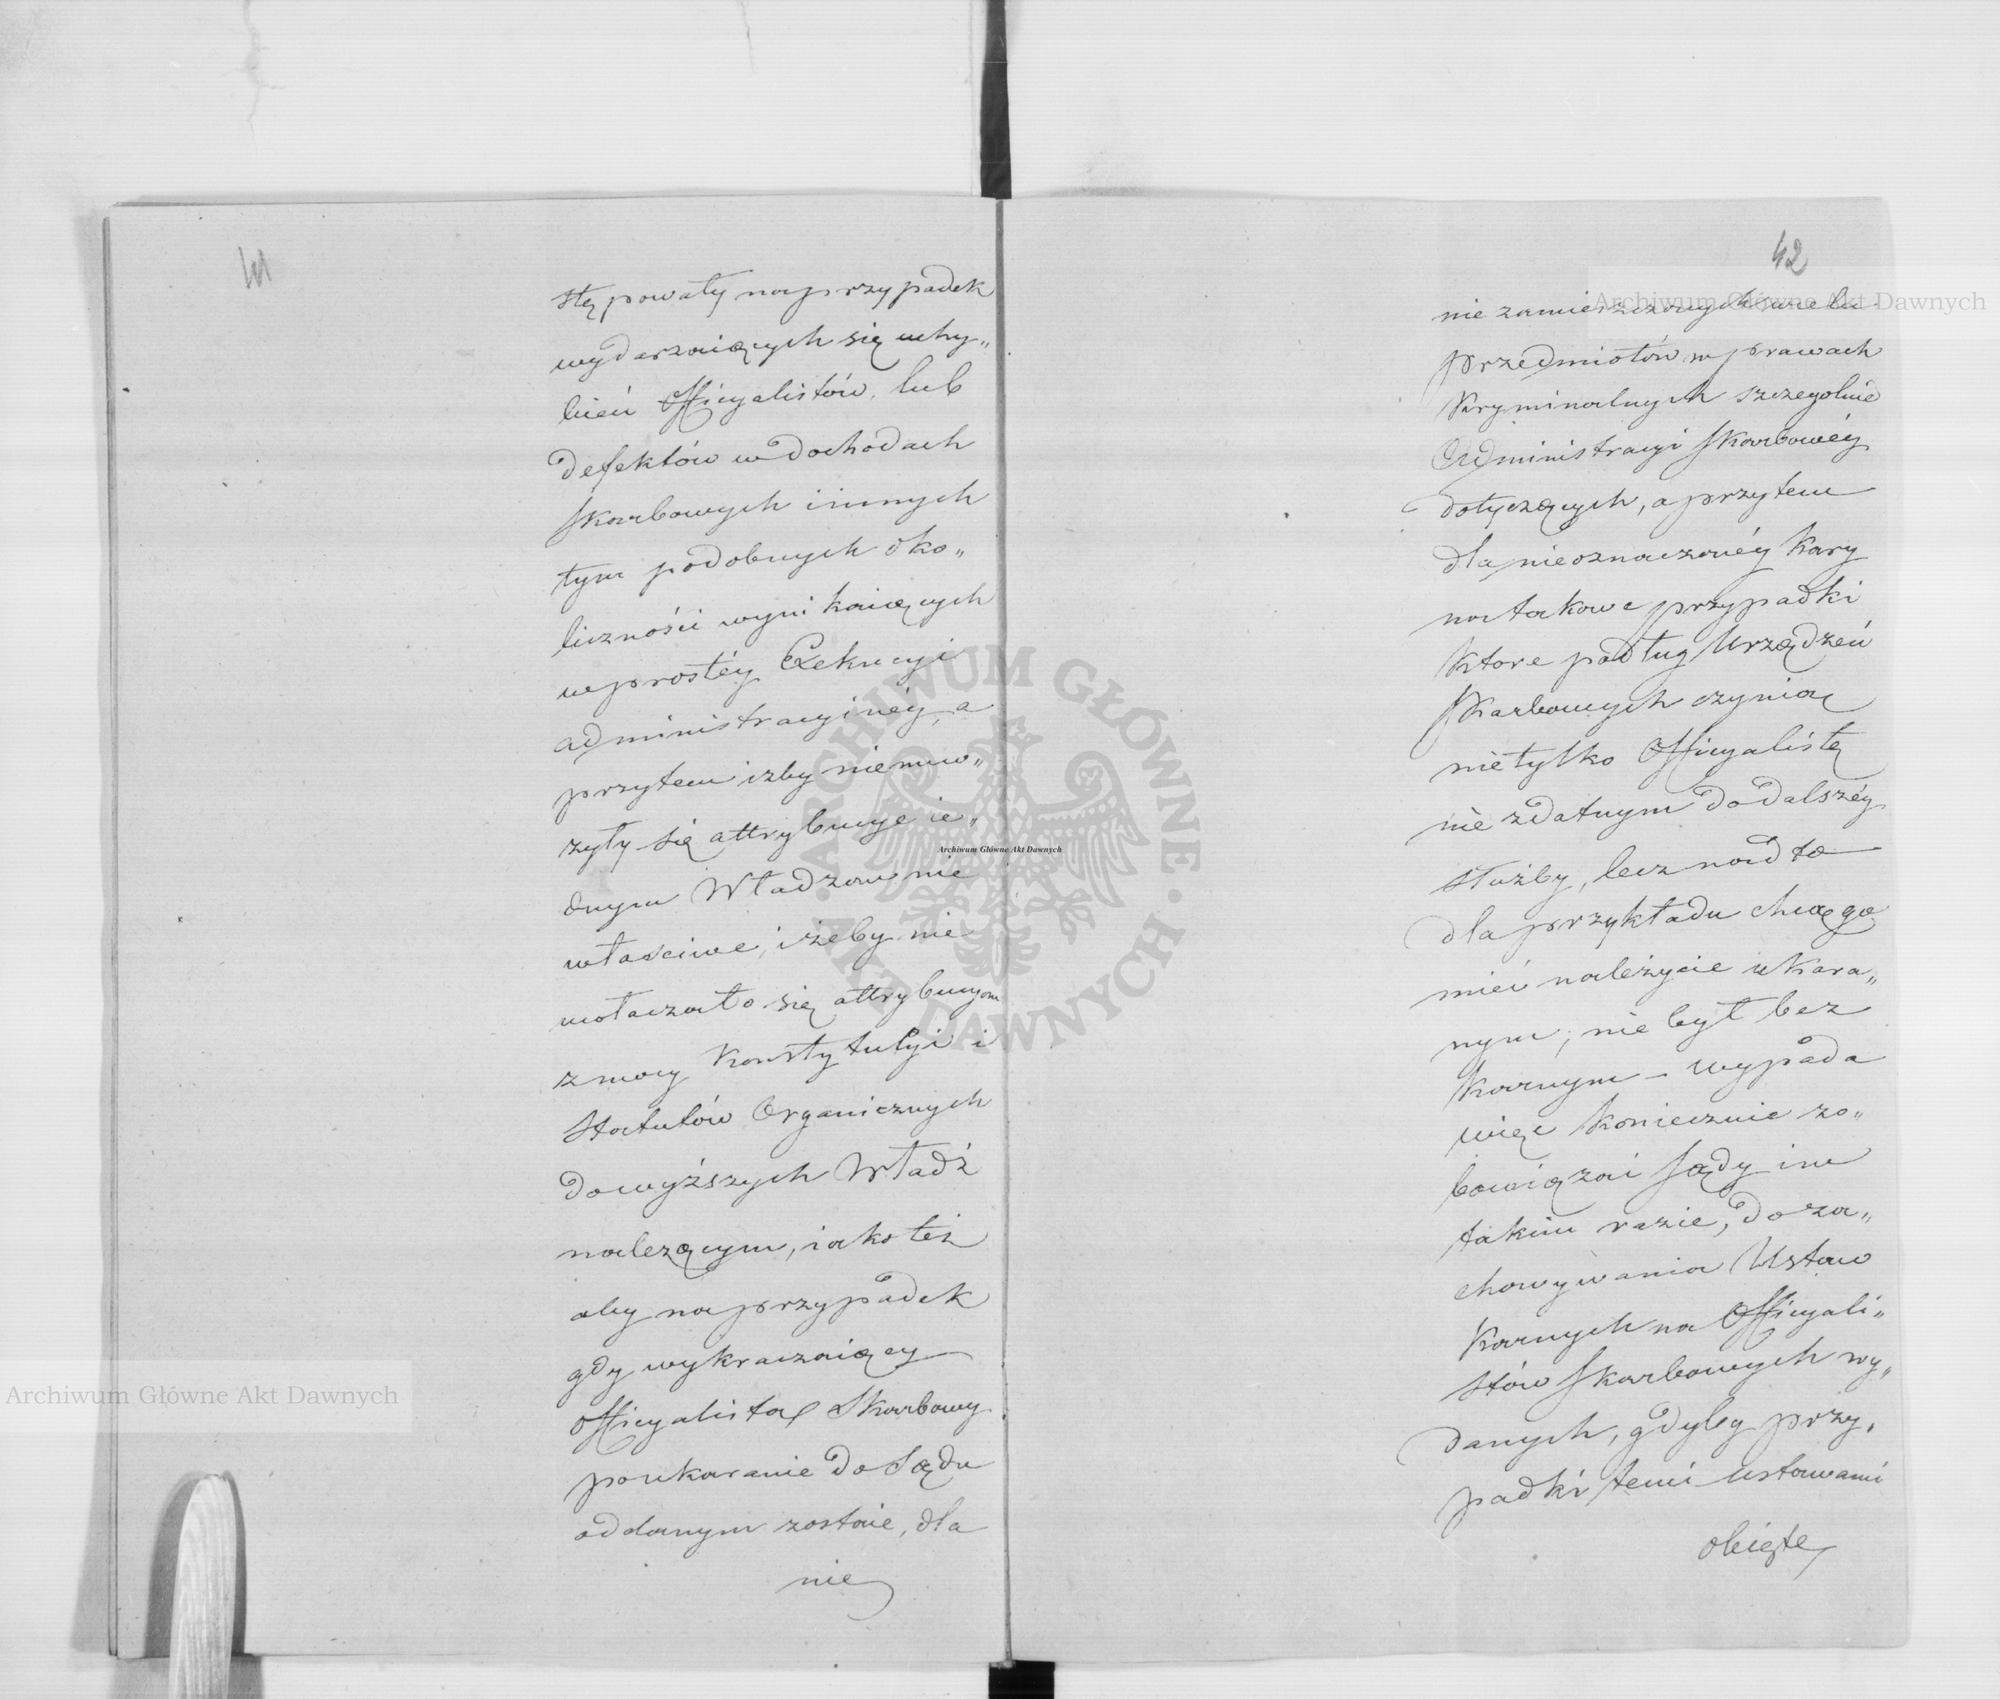 41
stępowały na przypadek
wydarzaiących się uchy„
bień Officyalistów, lub
Defektów w dochodach
Skarbowych i innych
tym podobnych oko„
liczności wynikaiących
w prostéy Exekucyi
administracyinéy, a
przytem izby nie mno„
żyły się attrybucye ie„
dnym Władzom nie
właściwe, i żeby nie
uwłaczało się attrybucyom
z mocy Konstytucyi i
Statutów Organicznych
do wyższych Władz
należącym, iako też
aby na przypadek
gdy wykraczaiący
Officyalista Skarbowy
po ukaranie do Sądu
oddanym zostaie, dla
nie
42
nie zamieszczonych wielu
Przedmiotów w prawach
Kryminalnych szczegolnie
Administracyi Skarbowéy
dotyczących, a przytem
dla nieoznaczonéy Kary
na takowe przypadki
Ktore podług Urządzeń
Skarbowych czynią
nie tylko Officyalistę
nie zdatnym do dalszéy
służby, lecz nadto
dla przykładu chcąc go
mieć należycie ukara„
nym, nie był bez
karnym – wypada
więc koniecznie zo„
bowiązać Sądy im
takim razie, do za„
chowywania Ustaw
Karnych na Officyali„
stów Skarbowych wy„
danych, gdyby przy„
padki temi ustawami
obięte
Archiwum Główne Akt Dawnych
Archiwum Główne Akt Dawnych
Archiwum Główne Akt Dawnych
ARCHIWUM GŁÓWNE · AKT DAWNYCH ·